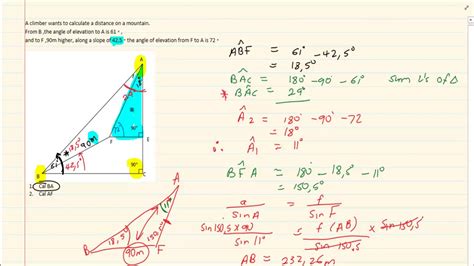 A climber wants to calculate a distance on a mountain.
From B ,the angle of elevation to A is 61 °,
and to F ,90m higher, along a slope of 42,5 ° the angle of elevation from F to A is 72 °
A
72
90°
E
F
90m
18,5°
61°
42,5°
B
90°
C
1. Cal BA
2. Cal AF
ABF = 61° - 42,5°
= 18,5°
BAC = 180° - 90 - 61° sum L's of Δ
* BAC = 29°
A2 = 180° - 90 - 72
= 18°
∴ A1 = 11°
BFA = 180° - 18,5 - 11°
= 150,5°
a / sin A = f / sin F
sin 150,5 × 90 / sin 11° = f (AB) / sin 150,5 × sin 150,5
AB = 232,26m
A
11°
18,5°
150,5°
B
90m
F